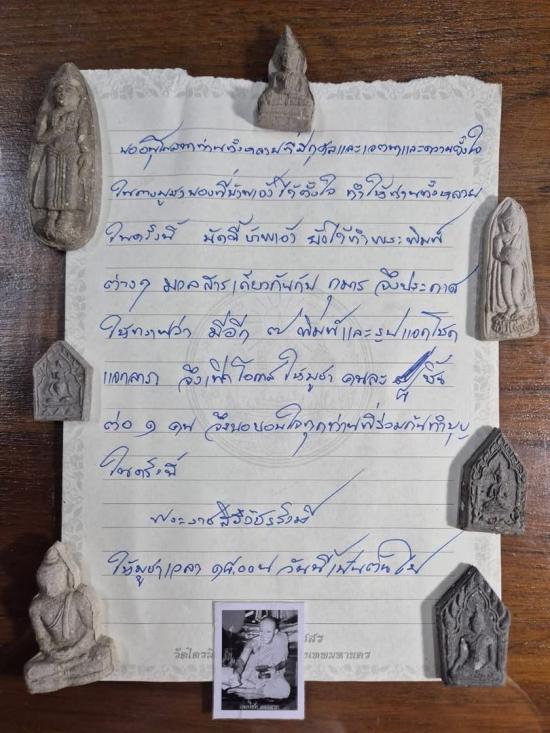 ขออนุโมทนาท่านทั้งหลายที่มีกุศลและเจตนาและความตั้งใจ
ในการบูชาของที่ข้าพเจ้าได้ตั้งใจ ทำให้ท่านทั้งหลาย
ในครั้งนี้ บัดนี้ข้าพเจ้า ยังได้ทำพระพิมพ์
ต่างๆ มวลสารเดียวกันกับ กุมาร จึงประกาศ
ให้ทราบว่า มีอีก ๗ พิมพ์และรูปแจกโชค
แจกลาภ จึงเปิดโอกาส ให้บูชา คนละ ชิ้น
ต่อ ๑ คน จึงขอขอบใจทุกท่านที่ร่วมกันทำบุญ
ในครั้งนี้
พระราช
ให้บูชาเวลา ๑๘.๐๐น วันนี้เป็นต้นไป